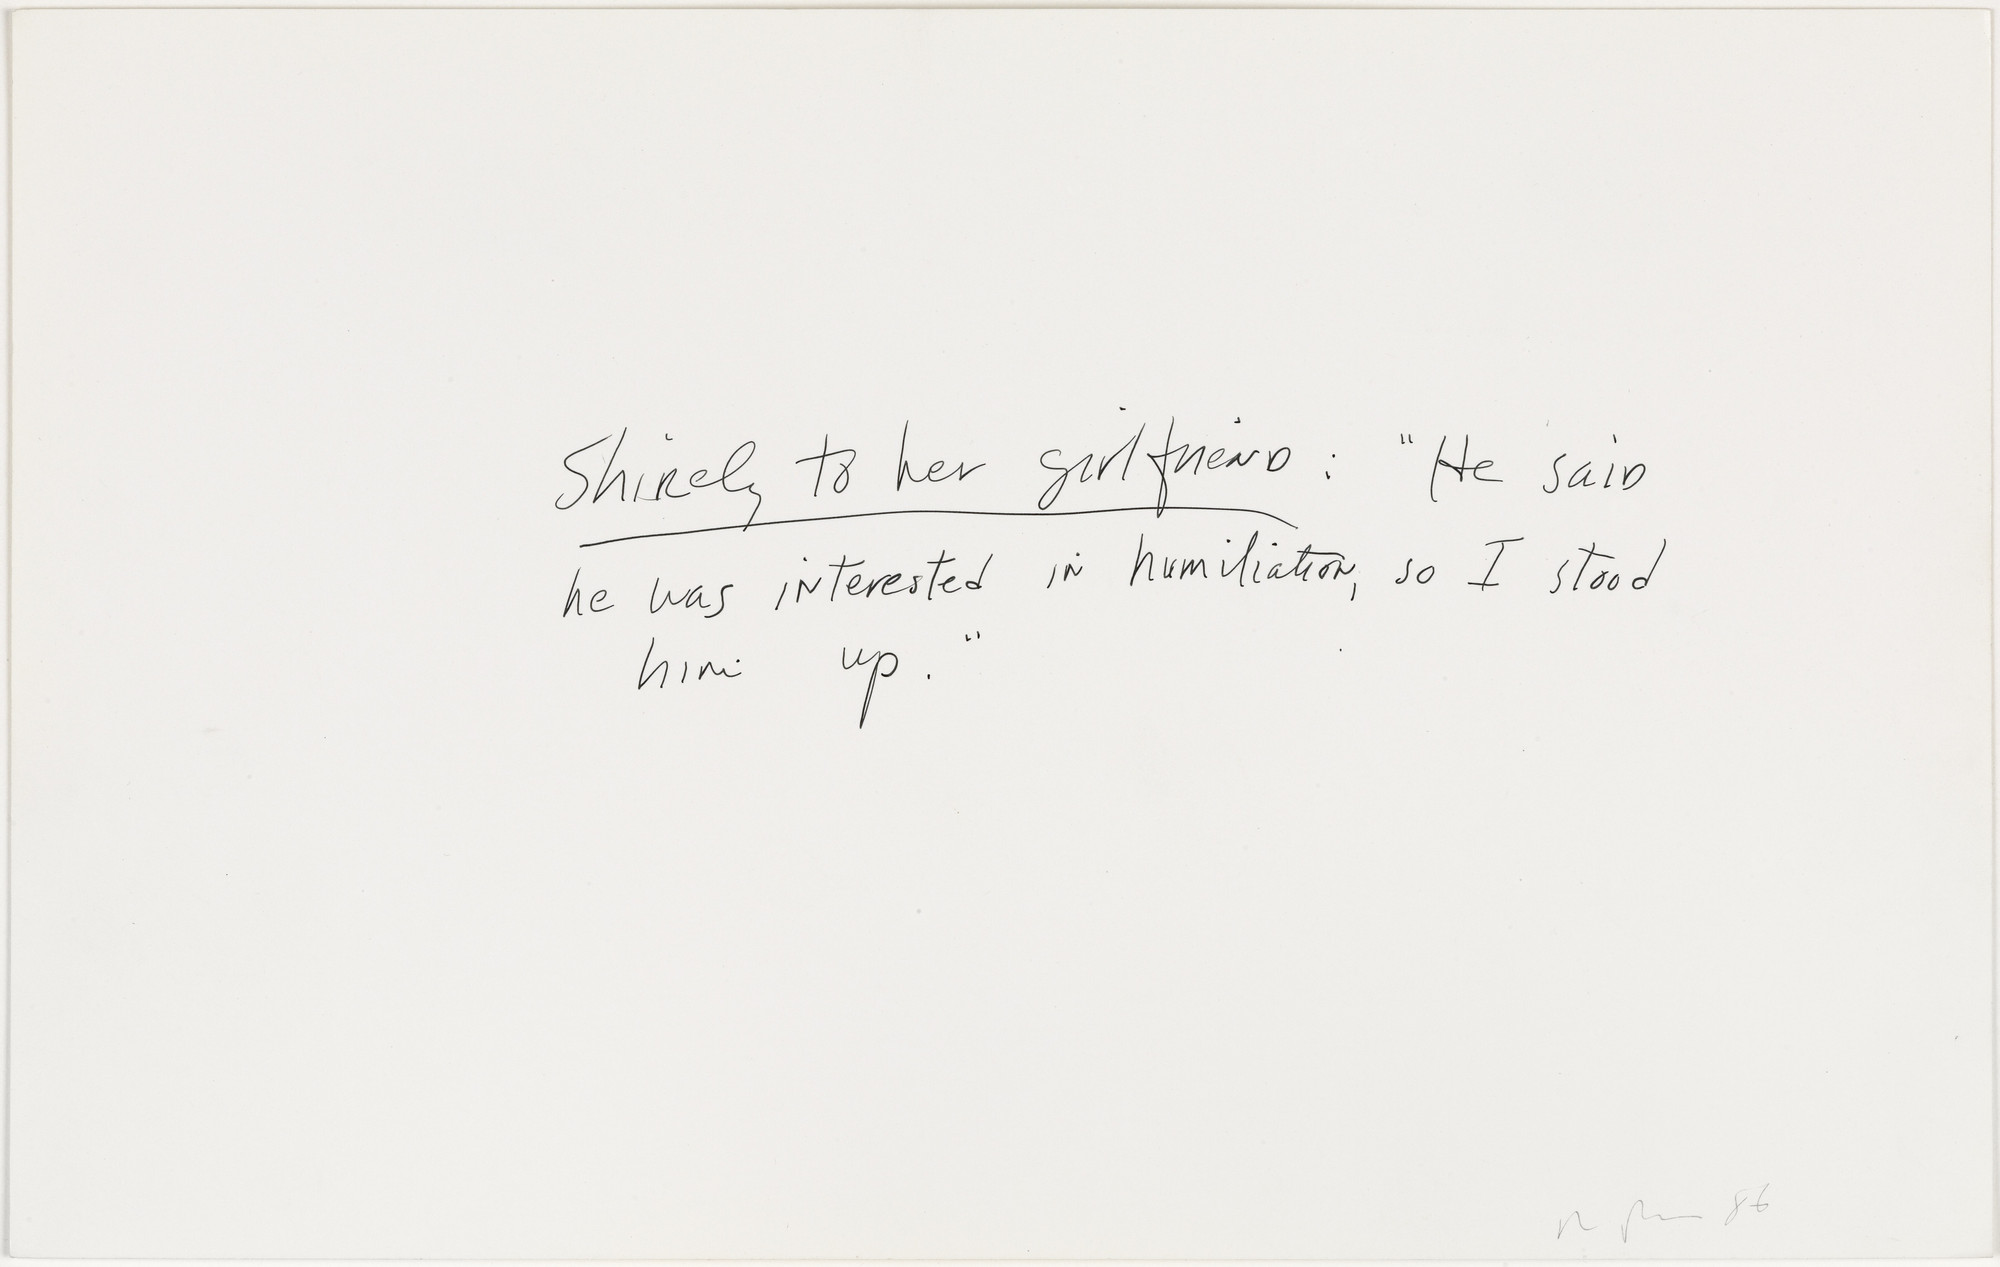 Shirely to her girlfriend: "He said
he was interested in humiliation, so I stood
him up."
86